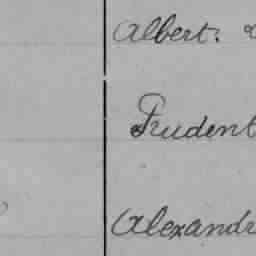 Albert.
Prudent
Alexandr